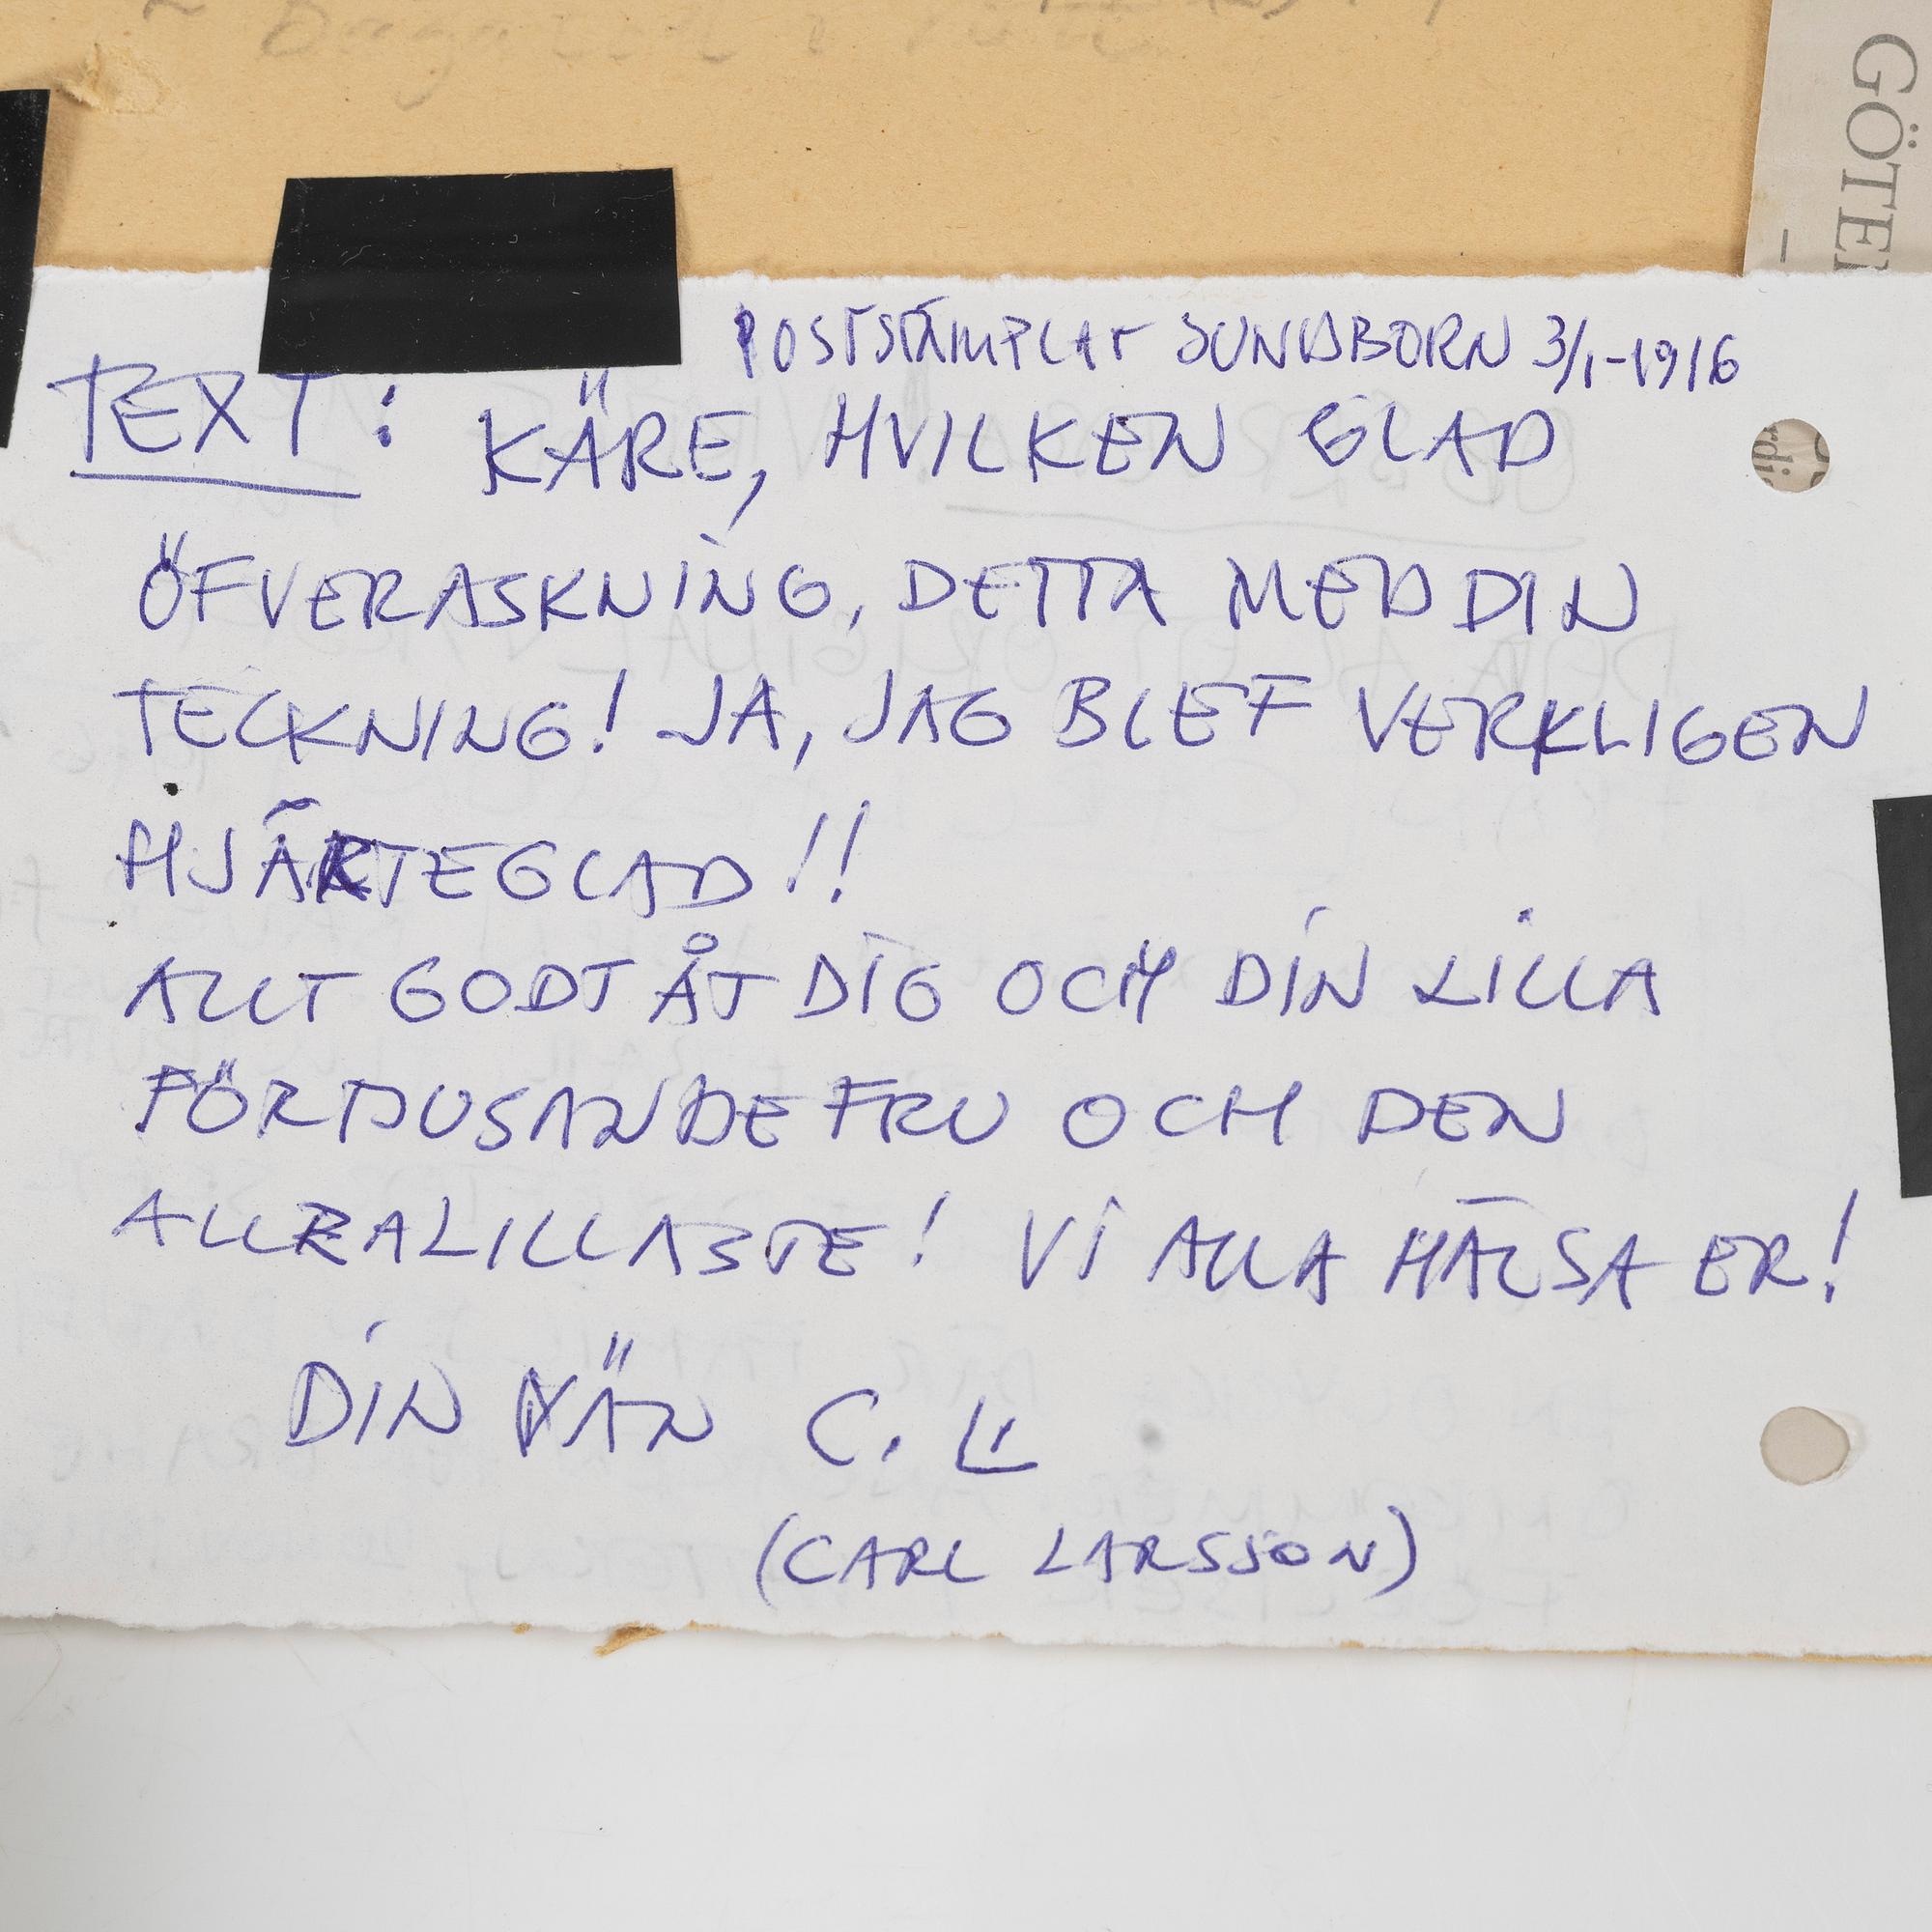 GÖTE
POSTSTÄMPLAT SUNDBORN 3/1-1916
TEXT: KÄRE, HVILKEN GLAD
ÖFVERASKNING, DETTA MED DIN
TECKNING! JA, JAG BLEF VERKLIGEN
HJÄRTEGLAD!!
ALLT GODT ÅT DIG OCH DIN LILLA
FÖRTJUSANDE FRU OCH DEN
ALLRALILLASTE! VI ALLA HÄLSA ER!
DIN VÄN C. L
(CARL LARSSON)